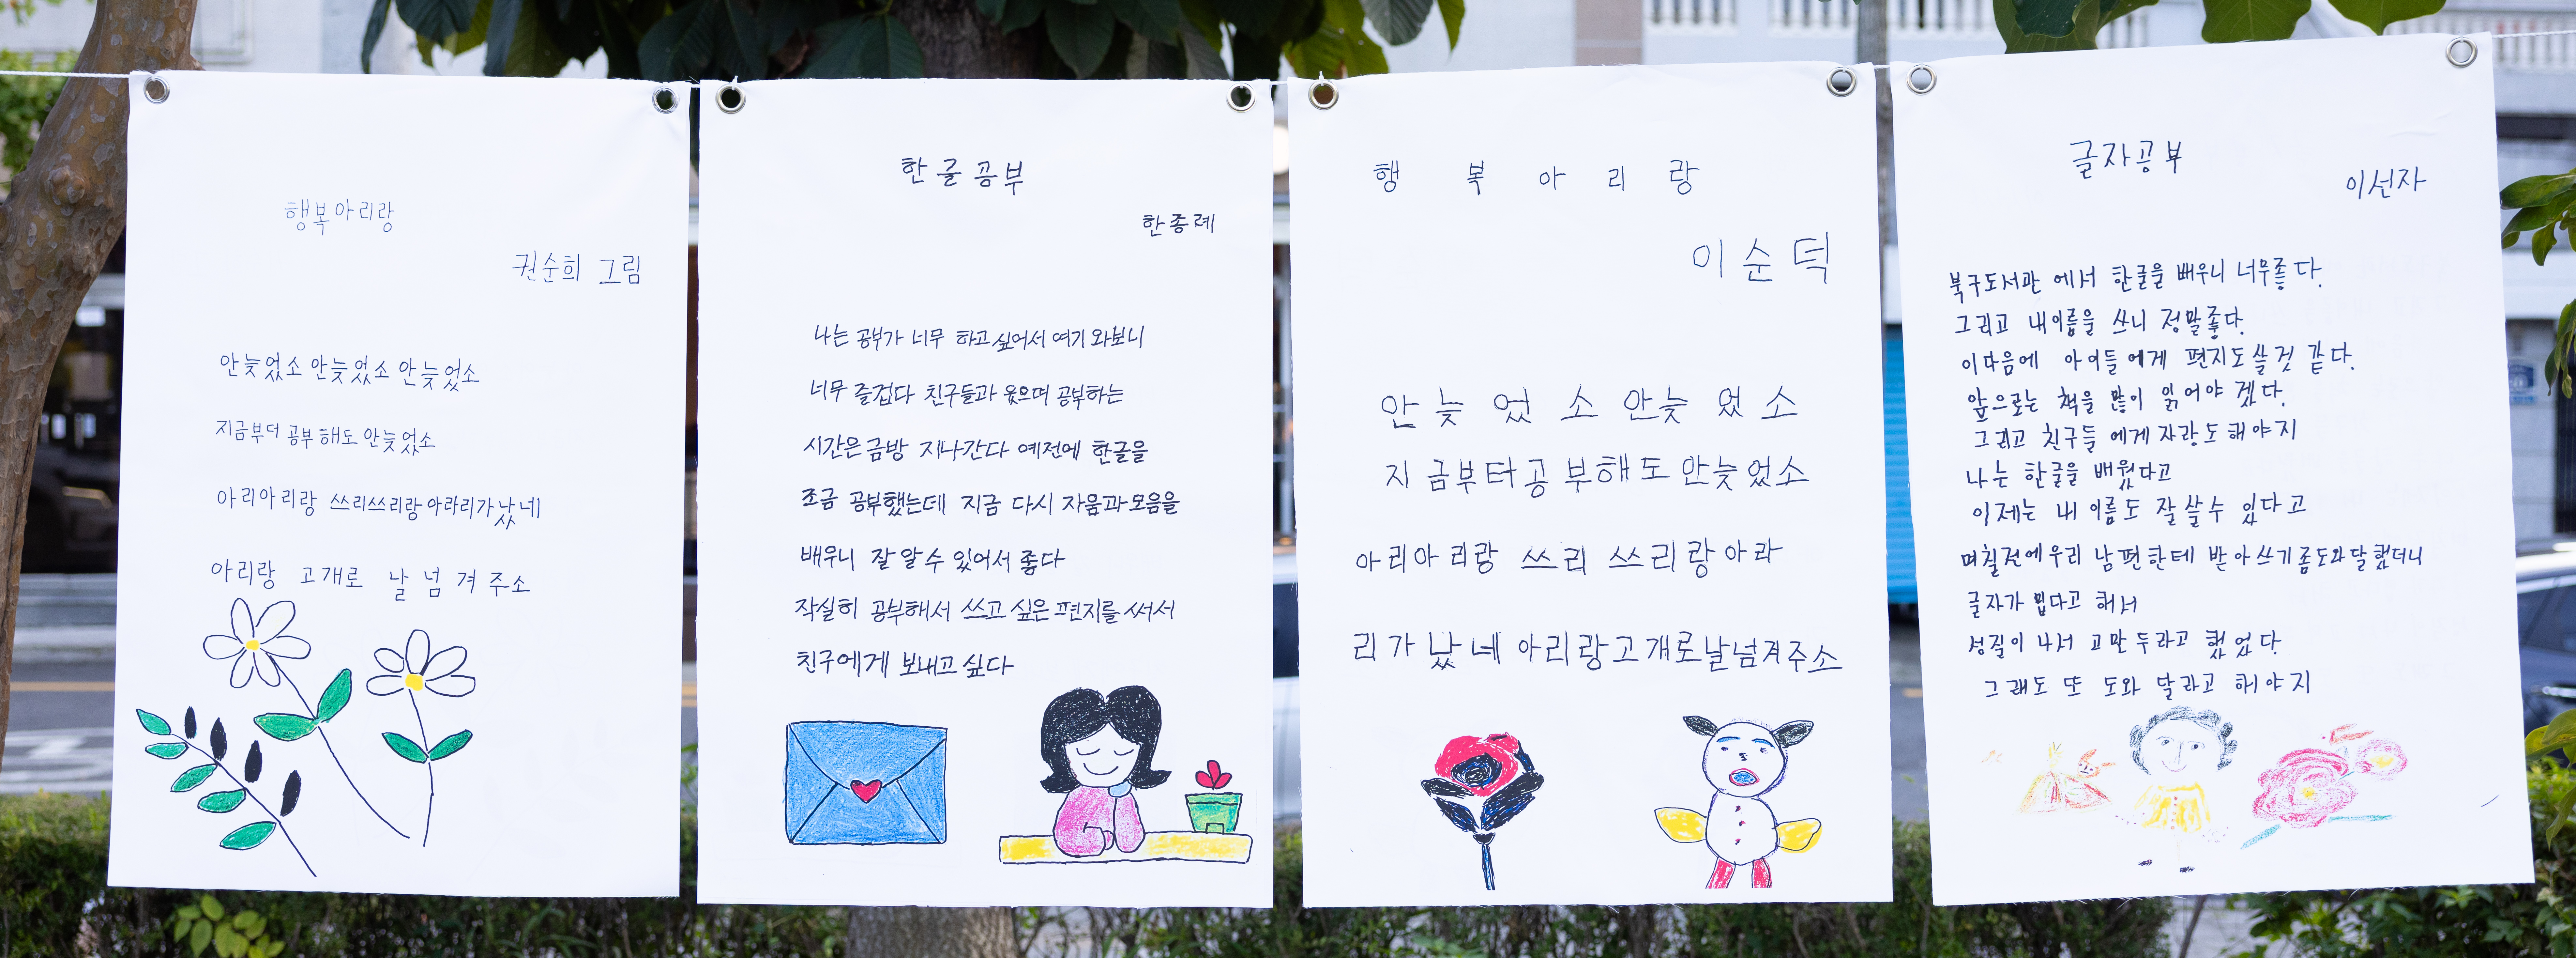 행복아리랑
권순희 그림
안늦었소 안늦었소 안늦었소
지금부더 공부해도 안늦었소
아리아리랑 쓰리쓰리랑아라리가났네
아리랑 고개로 날 넘겨주소
한글공부
한종례
나는 공부가 너무 하고싶어서 여기와보니
너무 즐겁다 친구들과 웃으며 공부하는
시간은금방 지나간다 예전에 한글을
조금 공부했는데 지금 다시 자음과모음을
배우니 잘알수 있어서 좋다
착실히 공부해서 쓰고 싶은 편지를 써서
친구에게 보내고 싶다
행복아리랑
이순덕
안늦었소 안늦었소
지금부터공부해도 안늦었소
아리아리랑 쓰리 쓰리랑아라
리가났네 아리랑고개로날넘겨주소
글자공부
이선자
북구도서관 에서 한글을 배우니 너무좋다.
그리고 내이름을 쓰니 정말좋다.
이다음에 아이들에게 편지도쓸것 같다.
앞으로는 책을 많이 읽어야 겠다.
그리고 친구들 에게자랑도해야지
나는 한글을 배웠다고
이제는 내 이름도 잘 쓸수 있다고
며칠전에우리 남편한테 받아쓰기좀도와달랬더니
글자가 밉다고 해서
성질이 나서 고만두라고 했었다.
그래도 또 도와 달라고 해야지